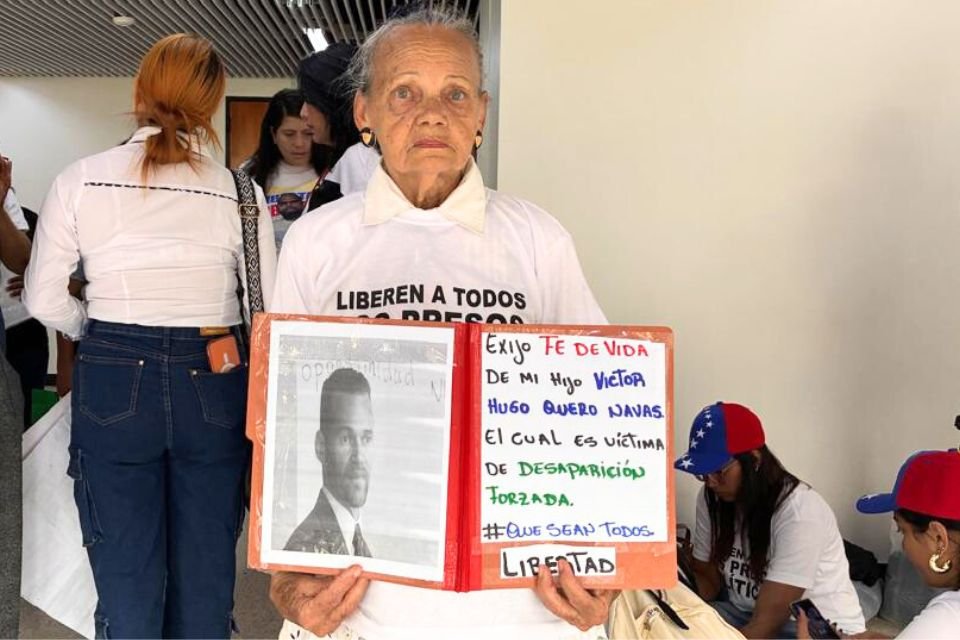 LIBEREN A TODOS
opportunidad
EXIJO FE DE VIDA
DE MI HIJO VICTOR
HUGO QUERO NAVAS.
El CUAL ES VÍCTIMA
DE DESAPARICIÓN
FORZADA.
#QUE SEAN TODOS.
LIBERTAD